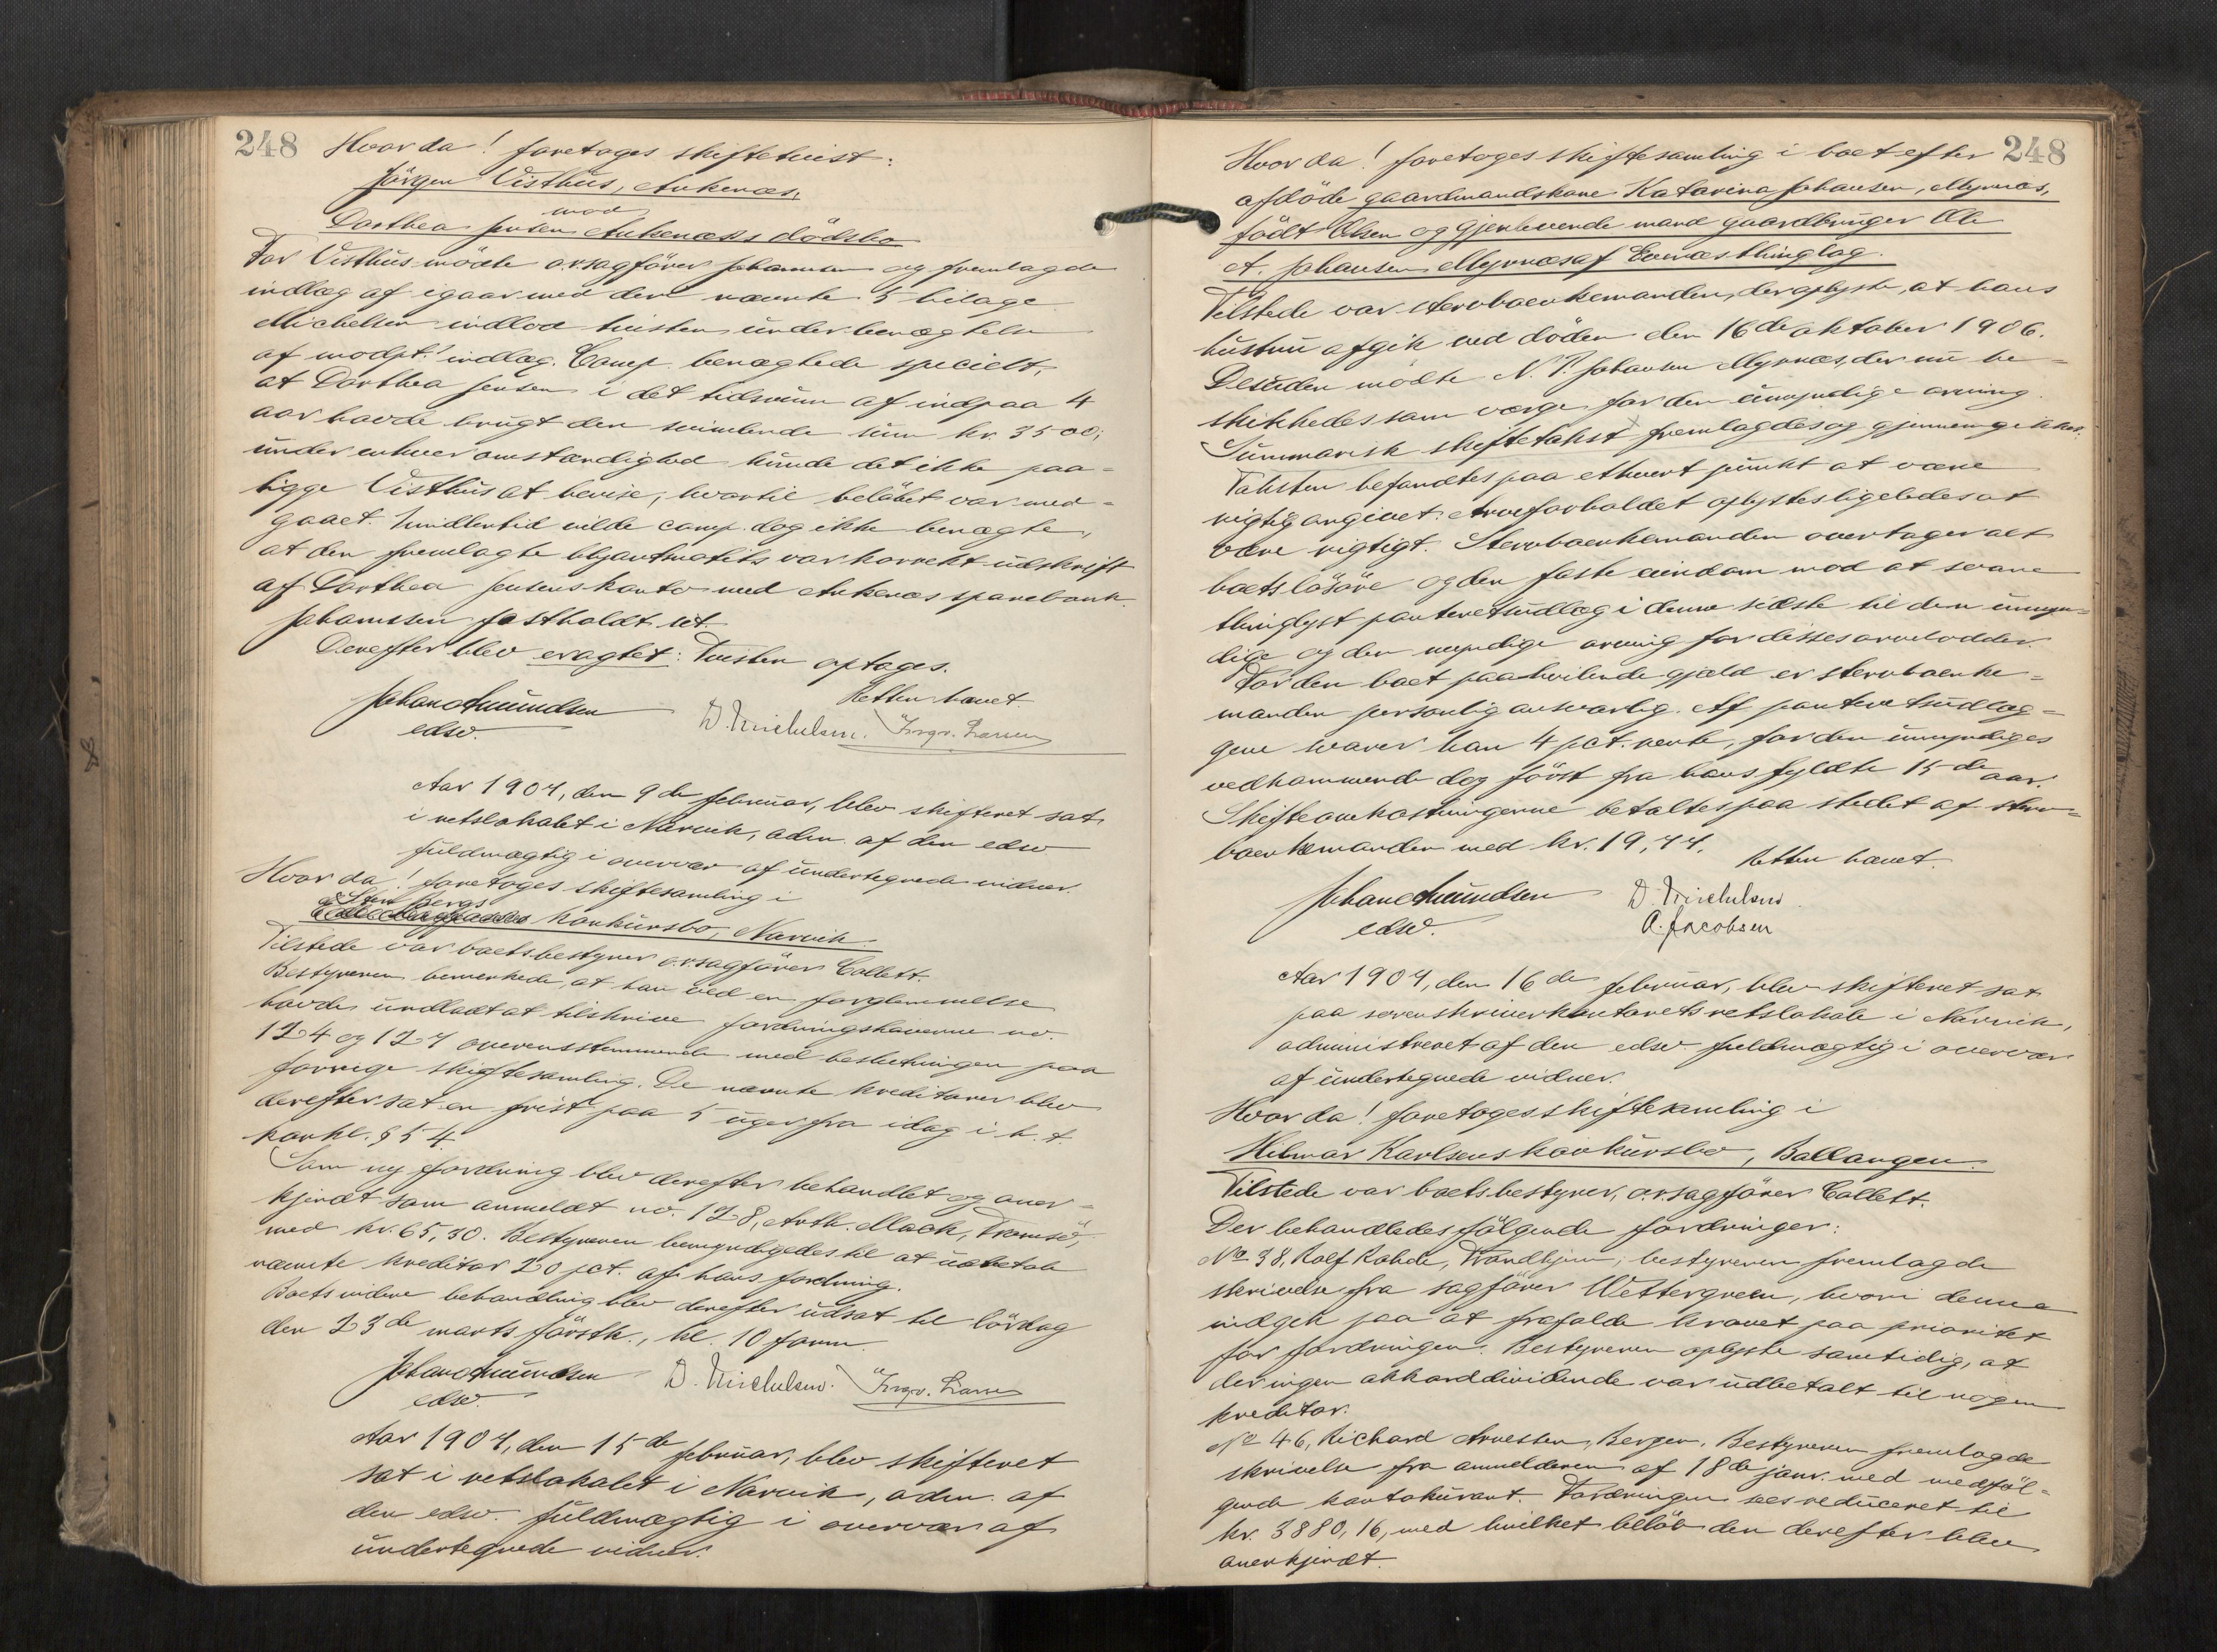 248
Hvorda! foretoges skiftetvist:
Jörgen Visthus, Ankenæs,
mod
Dorthea Jensen Ankenæs dödsbo
For Visthus mödte o.r.sagförer Johannsen og fremlagde
indlæg af igaar med deri nævnte 5 bilage
Michelsen indlod tvisten under benægtelse
af modpt.' indlæg. Comp. benægtede specielt,
at Dorthea Jensen i det tidsrum af indpaa 4
aar havde brugt den svimlende sum kr. 3500;
under enhver omstændighed kunde det ikke paa-
ligge Visthus at bevise, hvortil belöbet var med-
gaaet. Imidlertid vilde comp. dog ikke benægte,
at den fremlagte var korrekt udskrift
af Dorthea Jensens konto med Ankenæs sparebank.
Johannsen fastholdt sit.
Derefter blev eragtet: Tvisten optages.
Retten hævet
Johan Amundsen D. Michelsen. Ingv. Larsen
edsv.
Aar 1907, den 9de februar, blev skifteret sat
i retslokalet i Narvik, adm. af den edsv
fuldmægtig i overvær af undertegnede vidner.
Hvorda! foretoges skiftesamling i
Sten Bergs
konkursbo, Narvik.
Tilstede var boets bestyrer o.r.sagförer Collett.
Bestyreren bemerkede, at han ved en forglemmelse
havde undladt at tilskrive fordringshaverne no.
124 og 127 overensstemmende med beslutningen paa
forrige skiftesamling. De nævnte kreditorer blev
derefter sat en frist paa 5 uger fra idag i h. t.
konkl. § 54.
Som ny fordring blev derefter behandlet og aner-
kjendt som anmeldt no. 128, Arth. Mack, Tromsö,
med kr. 65,30. Bestyreren bemyndigedes til at udbetale
nævnte kreditor 20 pct. af hans fordring.
Boets videre behandling blev derefter udsat til lördag
den 23de marts förstk., kl. 10 form.
Johan Amundsen D. Michelsen. Ingv. Larsen
edsv.
Aar 1907, den 15de februar, blev skifteret
sat i retslokalet i Narvik, adm. af
den edsv. fuldmægtig i overvær af
undertegnede vidner.
248
Hvorda! foretoges skiftesamling i boet efter
afdöde gaardmandskone Katarina Johansen, Myrnæs,
födt Olsen og gjenlevende mand gaardbruger Ole
A. Johansen Myrnæs af Evenæs thinglag.
Tilstede var stervboenkemanden, der oplyste, at hans
hustru afgik ved döden den 16de oktober 1906.
Desuden mödte N. P. Johansen Myrnæs, der nu be-
skikkedes som værge for den umyndige arving.
Summarisk skiftetakst fremlagdes og gjennemgikkes.
Taksten befandtes paa ethvert punkt at være
rigtig angivet. Arveforholdet oplystes ligeledes at
være rigtigt. Stervboenkemanden overtager alt
boets lösöre og den faste eiendom mod at svare
thinglyst panteretsudlæg i denne sidste til den umyn-
dige og den myndige arving for disses arvelodder.
For den boet paahvilende gjæld er stervboenke-
manden personlig ansvarlig. Af panteretsudlæg-
gene svarer han 4 pct. rente, for den umyndiges
vedkommende dog först fra hans fyldte 15de aar.
Skifteomkostningerne betaltes paa stedet af sterv-
boenkemanden med kr. 19,44.
Retten hævet.
Johan Amundsen D. Michelsen
edsv. A. Jacobsen
Aar 1907, den 16de februar, blev skifteret sat
paa sorenskriverkontorets retslokale i Narvik,
administreret af den edsv fuldmægtig i overvær
af undertegnede vidner.
Hvorda! foretoges skiftesamling i
Hilmar Karlsens konkursbo, Ballangen.
Tilstede var boets bestyrer, o.r.sagförer Collett.
Der behandledes fölgende fordringer:
No 38, Rolf Rohde, Trondhjem; bestyreren fremlagde
skrivelse fra sagförer Wettergreen, hvori denne
indgik paa at frafalde kravet paa prioritet
for fordringen. Bestyreren oplyste samtidig, at
der ingen akkorddividende var udbetalt til nogen
kreditor.
No 46, Richard Arnesten, Bergen. Bestyreren fremlagde
skrivelse fra anmelderen af 18de janr. med medföl-
gende kontokurant. Fordringen sees reduceret til
kr. 3880,16, med hvilket belöb den derefter blev
anerkjendt.